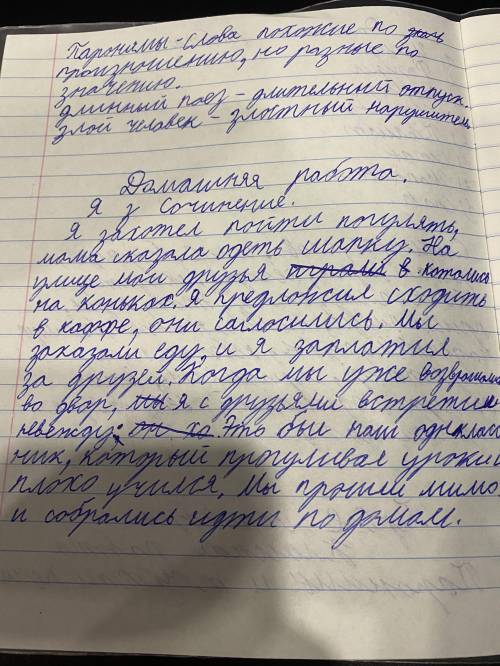 Паронимы - слова похожие по
произношению, но разные по
значению.
длинный поез - длительный отпуск.
злой человек - злостный нарушитель
Домашняя работа.
Я з Сочинение.
Я захотел пойти погулять,
мама сказала одеть шапку. На
улице мои друзья играли в катались
на коньках. Я предложил сходить
в каффе, они согласились. Мы
заказали еду, и я заплатил
за друзей. Когда мы уже возвращались
во двор, мы я с друзьями встретили
невежду. он хо Это был наш одноклас
ник, который прогуливал уроки и
плохо учился, Мы прошли мимо
и собрались идти по домам.